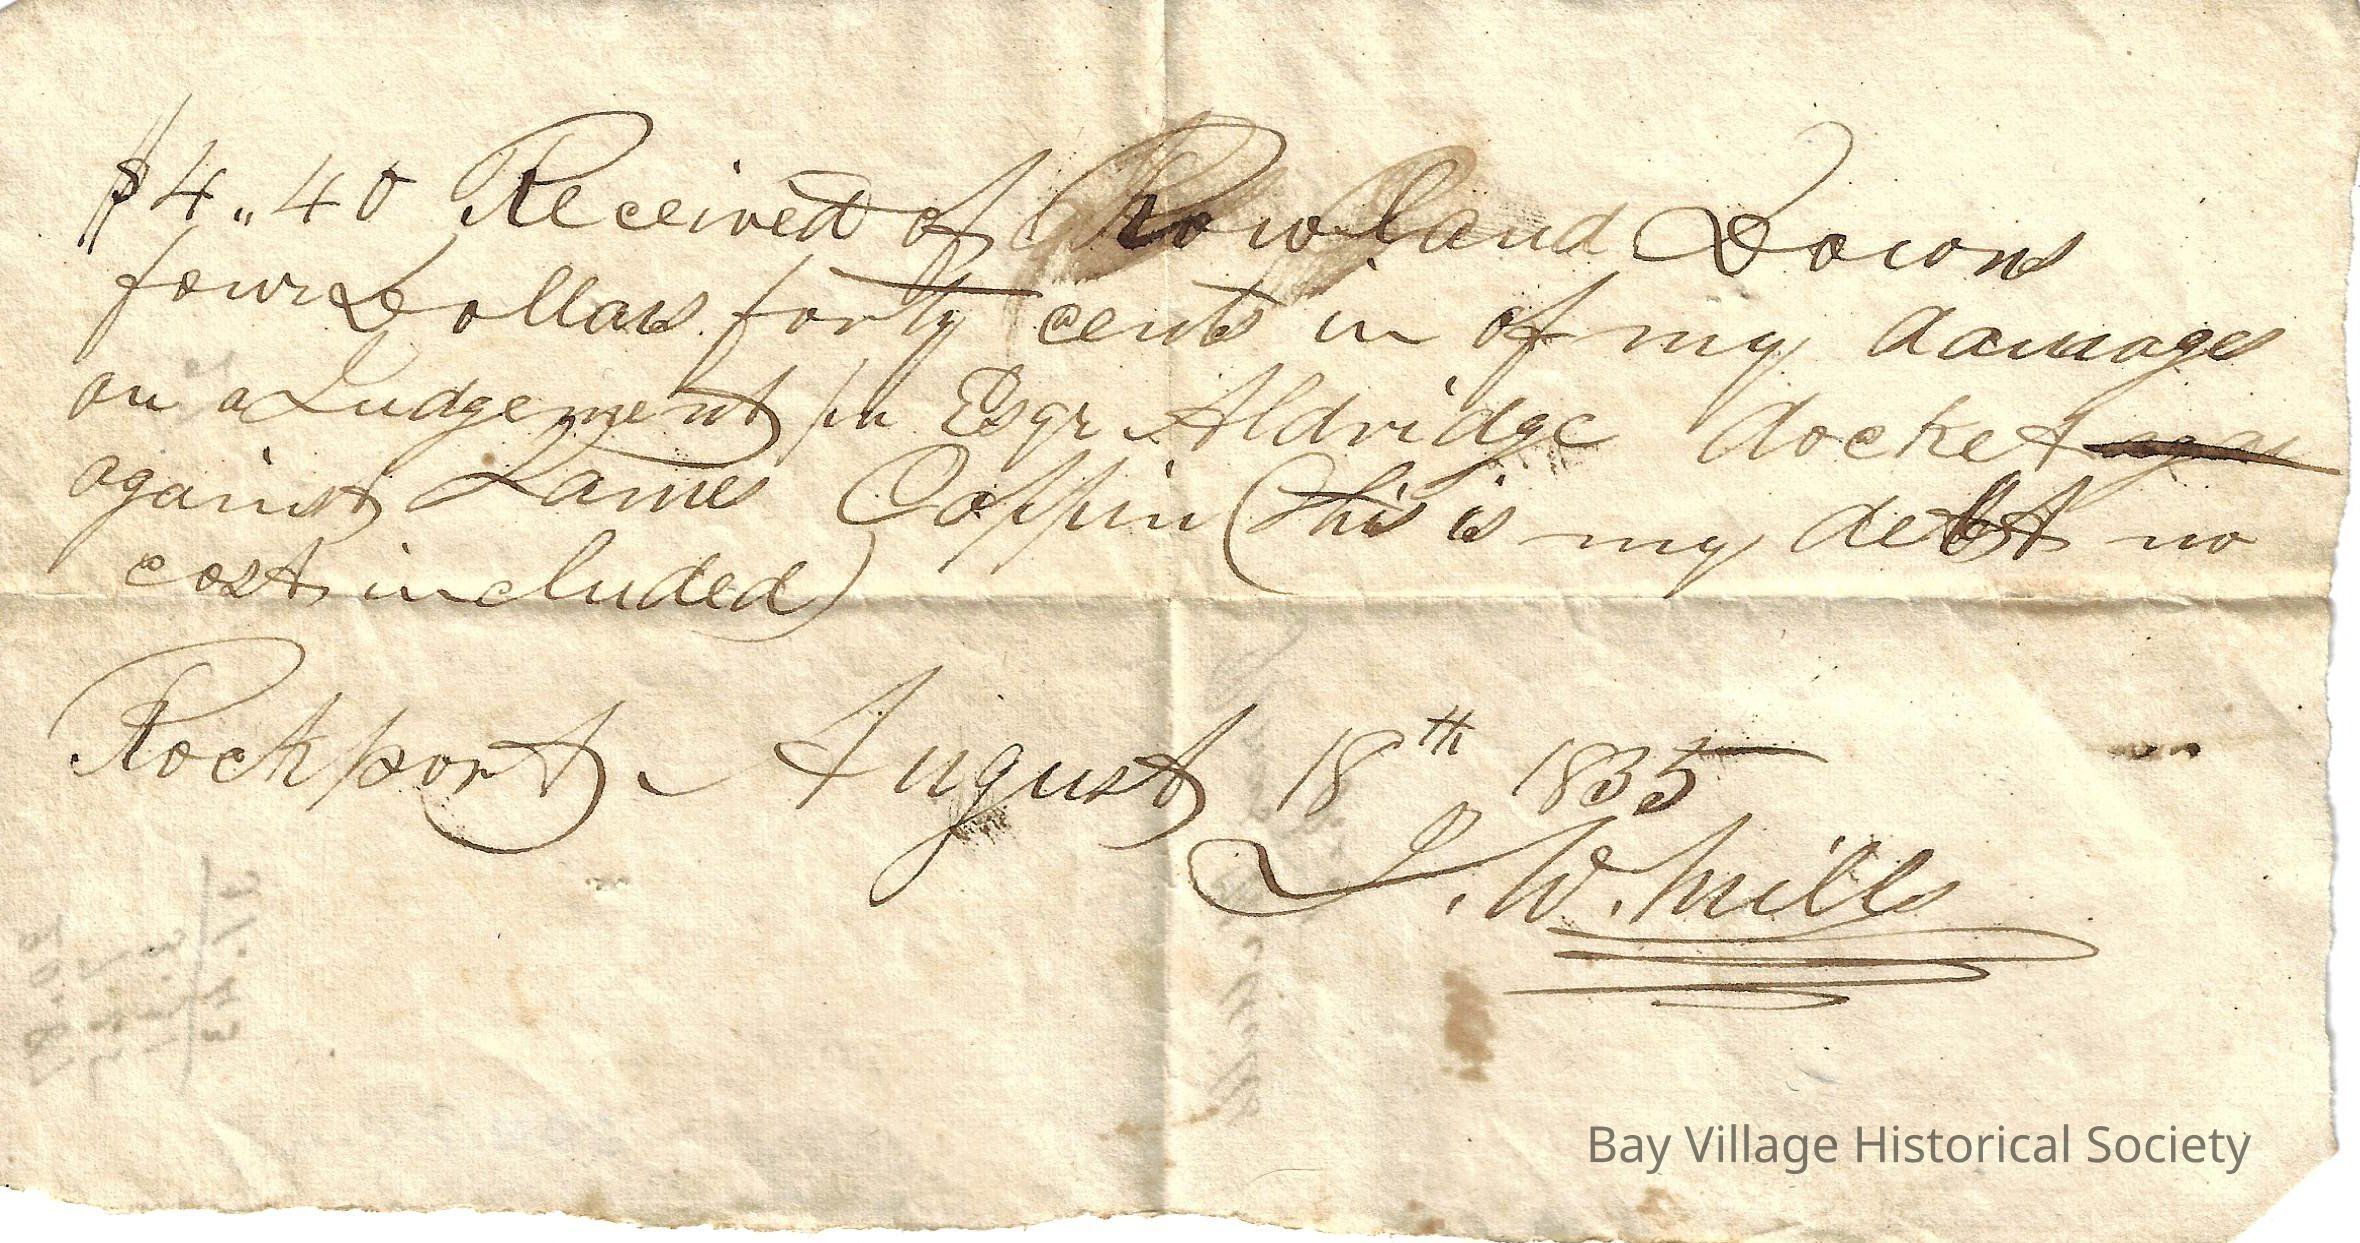 $4„40 Received of Rowland Downs
four Dollars forty cents in of my damages
on a Judgement on Esqr Aldridge docket
against James Coppin (this is my debt no
cost included)
Rockport August 18th 1835
J. W. Mills
Bay Village Historical Society